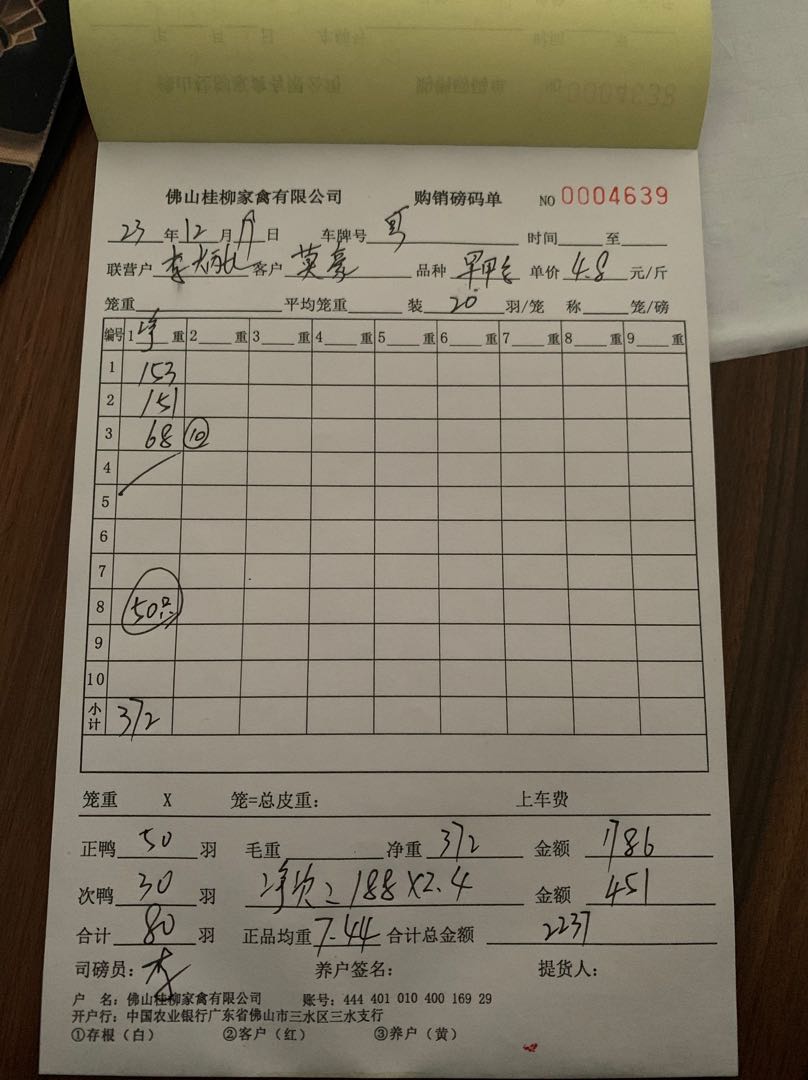 佛山桂柳家禽有限公司 购销磅码单 NO 0004639
23年12月 日 车牌号 时间 至
联营户 李 客户 英豪 品种 单价 4.8 元/斤
笼重 平均笼重 装 20 羽/笼 称 笼/磅
编号 1 净 重 2 重 3 重 4 重 5 重 6 重 7 重 8 重 9 重
1 153
2 151
3 68 ⑩
4
5
6
7
8 50只
9
10
小计 372
笼重 X 笼=总皮重： 上车费
正鸭 50 羽 毛重 净重 372 金额 1786
次鸭 30 羽 净次：188×2.4 金额 451
合计 80 羽 正品均重 7.44 合计总金额 2237
司磅员：李 养户签名： 提货人：
户 名：佛山桂柳家禽有限公司 账号：444 401 010 400 169 29
开户行：中国农业银行广东省佛山市三水区三水支行
①存根（白） ②客户（红） ③养户（黄）